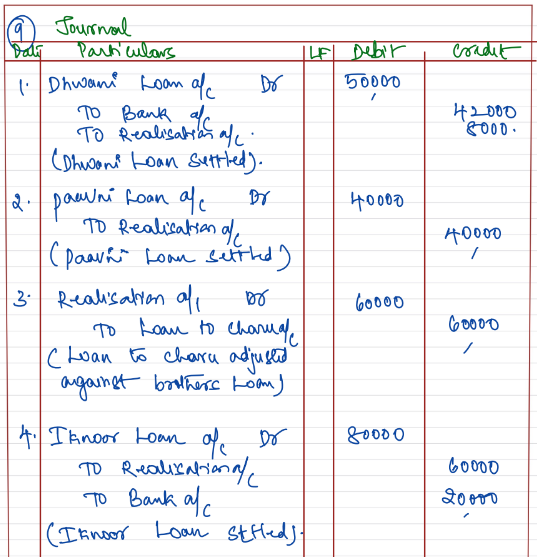 9 Journal
Date Particulars LF Debit Credit
1. Dhwani Loan a/c Dr 50000
To Bank a/c 42000
To Realisation a/c. 8000.
(Dhwani Loan Settled).
2. Paavni Loan a/c Dr 40000
To Realisation a/c 40000
(Paavni Loan Settled)
3. Realisation a/c Dr 60000
To Loan to Charu a/c 60000
(Loan to Charu adjusted
against brothers Loan)
4. Iknoor Loan a/c Dr 80000
To Realisation a/c 60000
To Bank a/c 20000
(Iknoor Loan Settled).